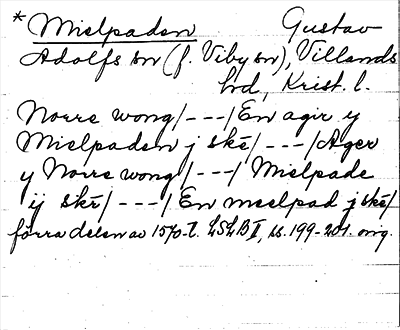 * Mielpaden Gustav
Adolfs sn (f. Viby sn), Villands
hd, Krist. l.
Norre wong/---/En agir y
Mielpaden j ske/---/Ager
y Norre wong/---/Mielpade
ij ske/---/En meelpad j ske/
förra delen av 1570-t. LSLB II, ss. 199-201. orig.